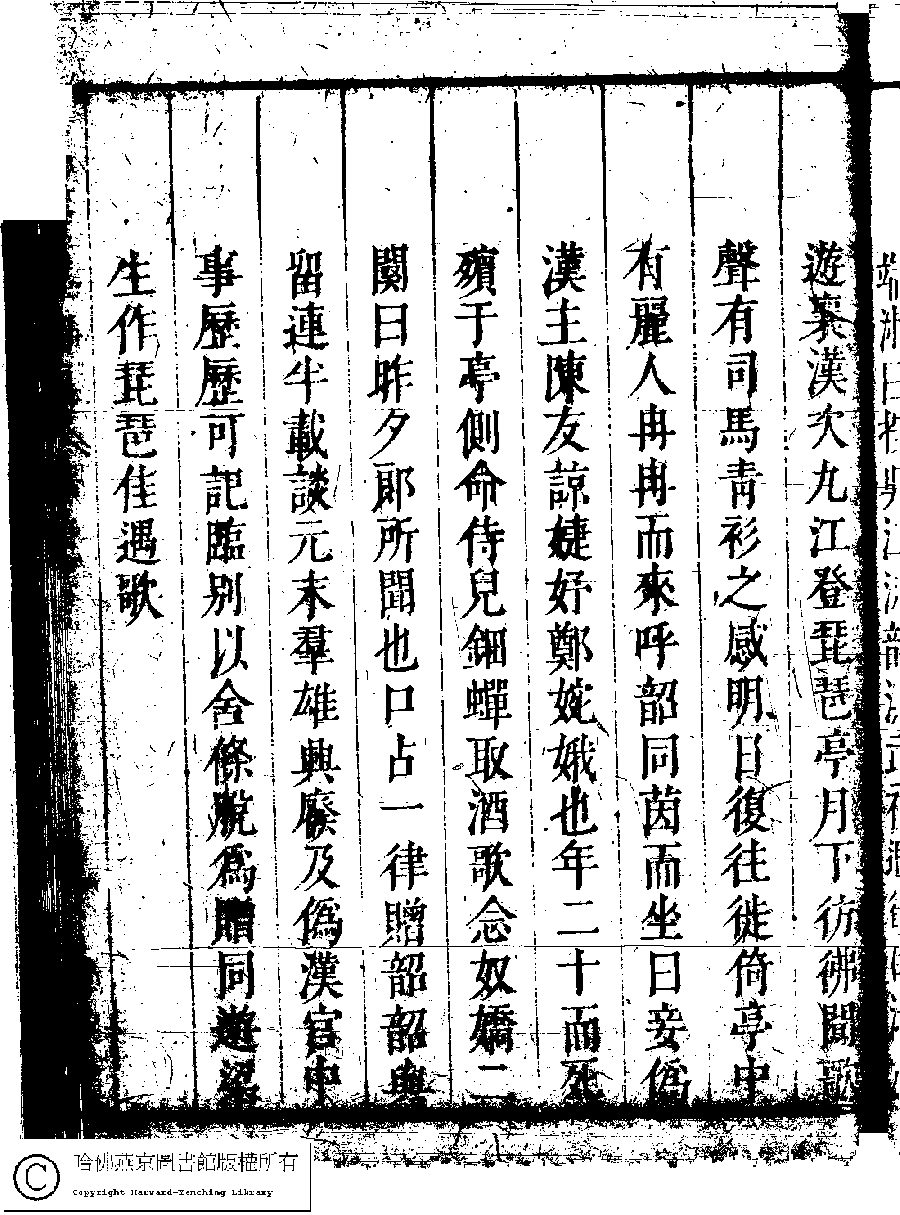 遊襄漢次九江登琵琶亭月下彷彿聞歌
聲有司馬青衫之感明日復往徙倚亭中
有麗人冉冉而來呼韶同茵而坐曰妾僞
漢主陳友諒婕妤鄭婉娥也年二十而死
殯于亭側命侍兒鈿蟬取酒歌念奴嬌二
闋曰昨夕郎所聞也口占一律贈韶韶與
留連半載談元末羣雄興廢及僞漢宮中
事歷歷可記臨別以金條脫爲贈同遊梁
生作琵琶佳遇歌
哈佛燕京圖書館版權所有
Copyright Harvard-Yenching Library